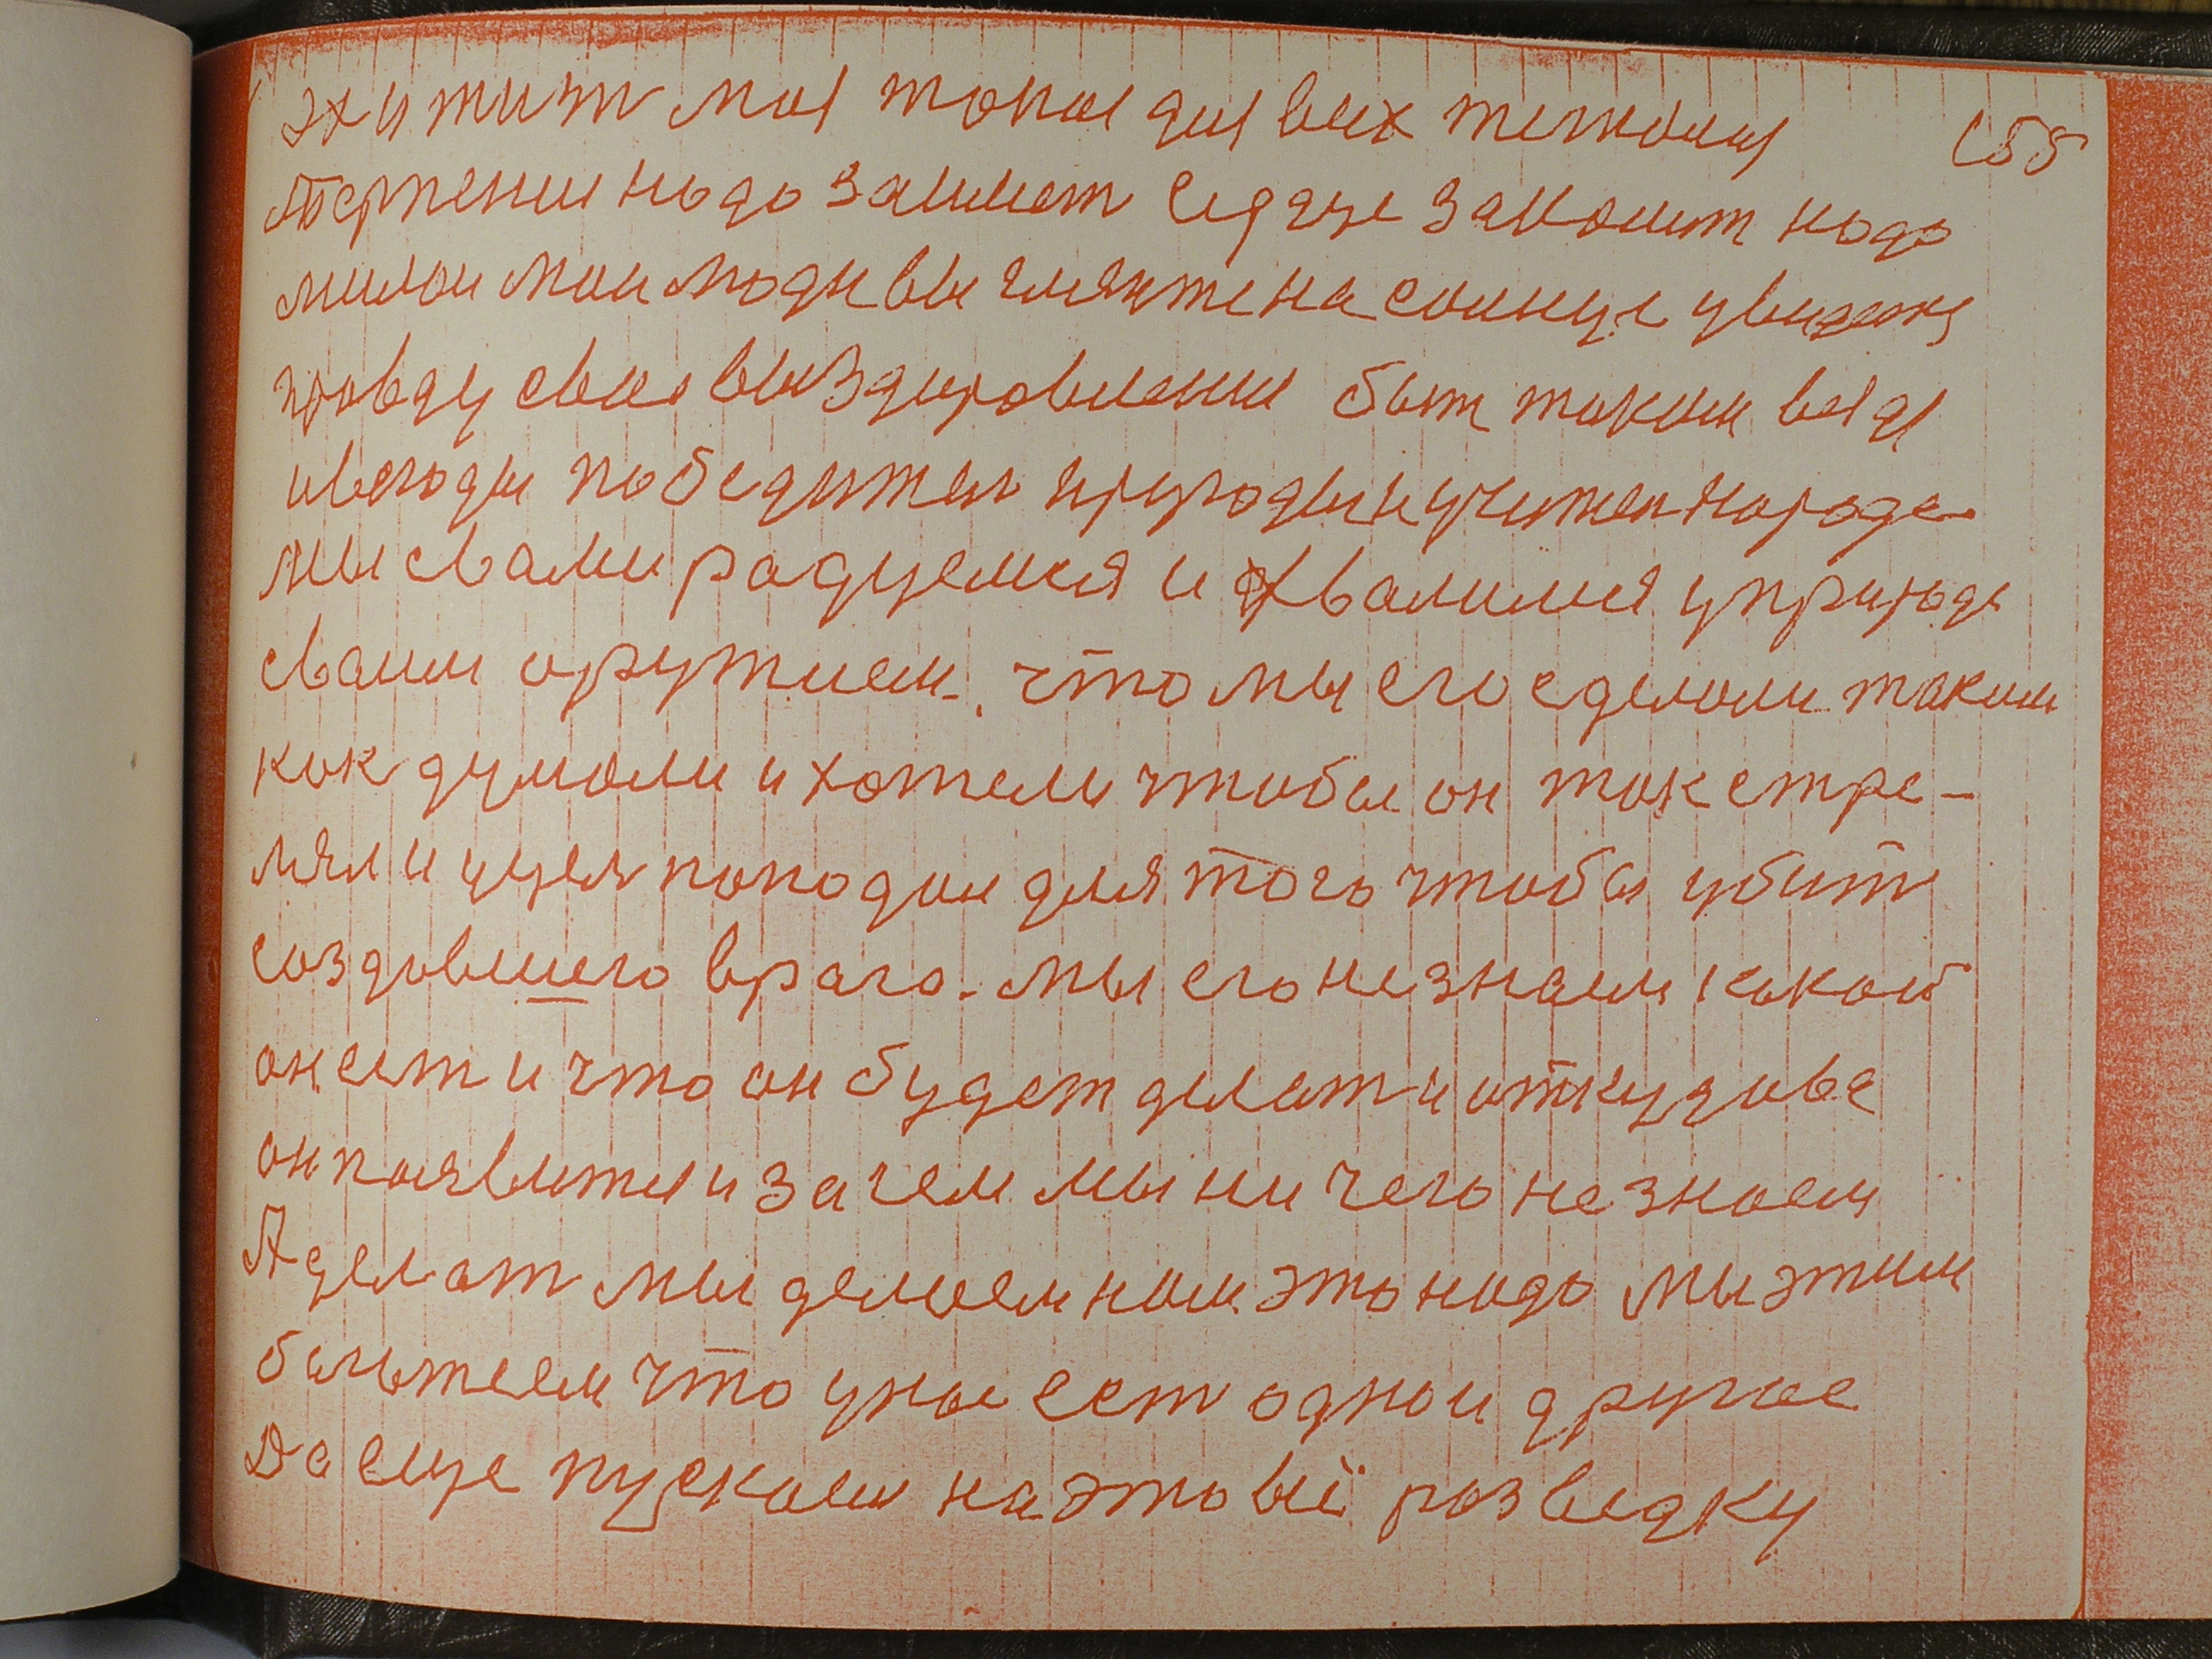 жит мая такая для всех тежолая 155
терпение надо занимат серяце закалит надо
милаи маи люди вы гляньте на сонце увидете
правду свие выздиравление быт таким вада
и вегоды победител природы и учител народа
мы свами радуемся и хвалимся у природе
сваим оружием. что мы его сделали таким
как думали и хотели чтобы он так стре-
лял и у цел попадал для того чтобы убит
создавшего врага. мы его не знаем какой
он ест и что он будет делат и откудова
он паявится и зачем мы ни чего не знаем
А делат мы делаем нам это надо мы этим
багатеем что у нас ест одно и другое
Да еще пускаем на это всё разведку